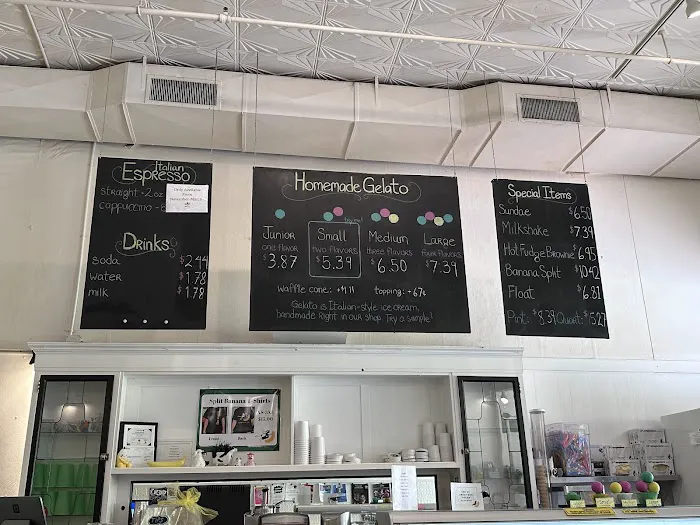 Italian
Espresso
straight - 2 oz
cappuccino - 8
Drinks
soda $2.44
water $1.78
milk $1.78
Homemade Gelato
Junior
one flavor
$3.87
Small
two flavors
$5.39
Medium
three flavors
$6.50
Large
four flavors
$7.39
Waffle cone: +$1.11 topping: +67¢
Gelato is Italian-style ice cream,
handmade right in our shop. Try a sample!
Special Items
Sundae $6.50
Milkshake $7.39
Hot Fudge Brownie $6.95
Banana Split $10.42
Float $6.81
Pint: $8.39 Quart: $15.27
Split Banana T-Shirts